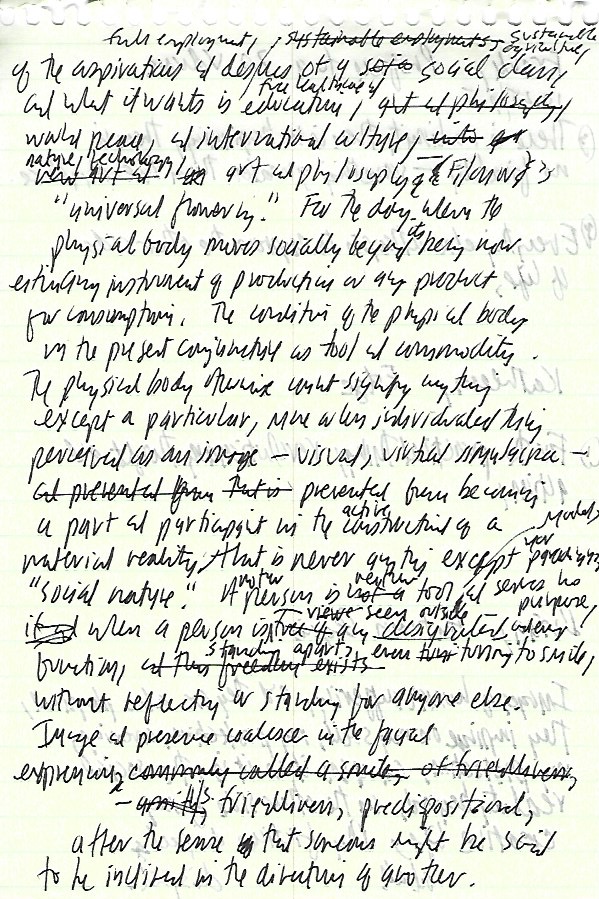 full employment, sustainable employment, sustainable agriculture,
of the aspirations and desires of a social class,
and what it wants is free healthcare and education, art and philosophy,
world peace, and international culture, into
nature, technology, art and philosophy
"universal flowering." For the day when the
physical body moves socially beyond its being now
estranging instrument of production or any product
for consumption. The condition of the physical body
in the present conjuncture as tool and commodity.
The physical body otherwise can't signify anything
except a particular, more or less individuated thing
perceived as an image – visual, virtual simulacra –
and presented from that is prevented from becoming
a part and participant in the active construction of a
material reality, that is never anything except models, paradigms
"social nature." A person is neither a tool and serves no purpose,
when a person is viewed seen outside any designated
function, stands apart, and this freedom exists even turning to smile,
without reflecting or standing for anyone else.
Image and presence coalesce in the facial
expression, commonly called a smile, of friendliness,
– amity's friendliness, predispositional,
after the sense that someone might be said
to be inclined in the direction of another.